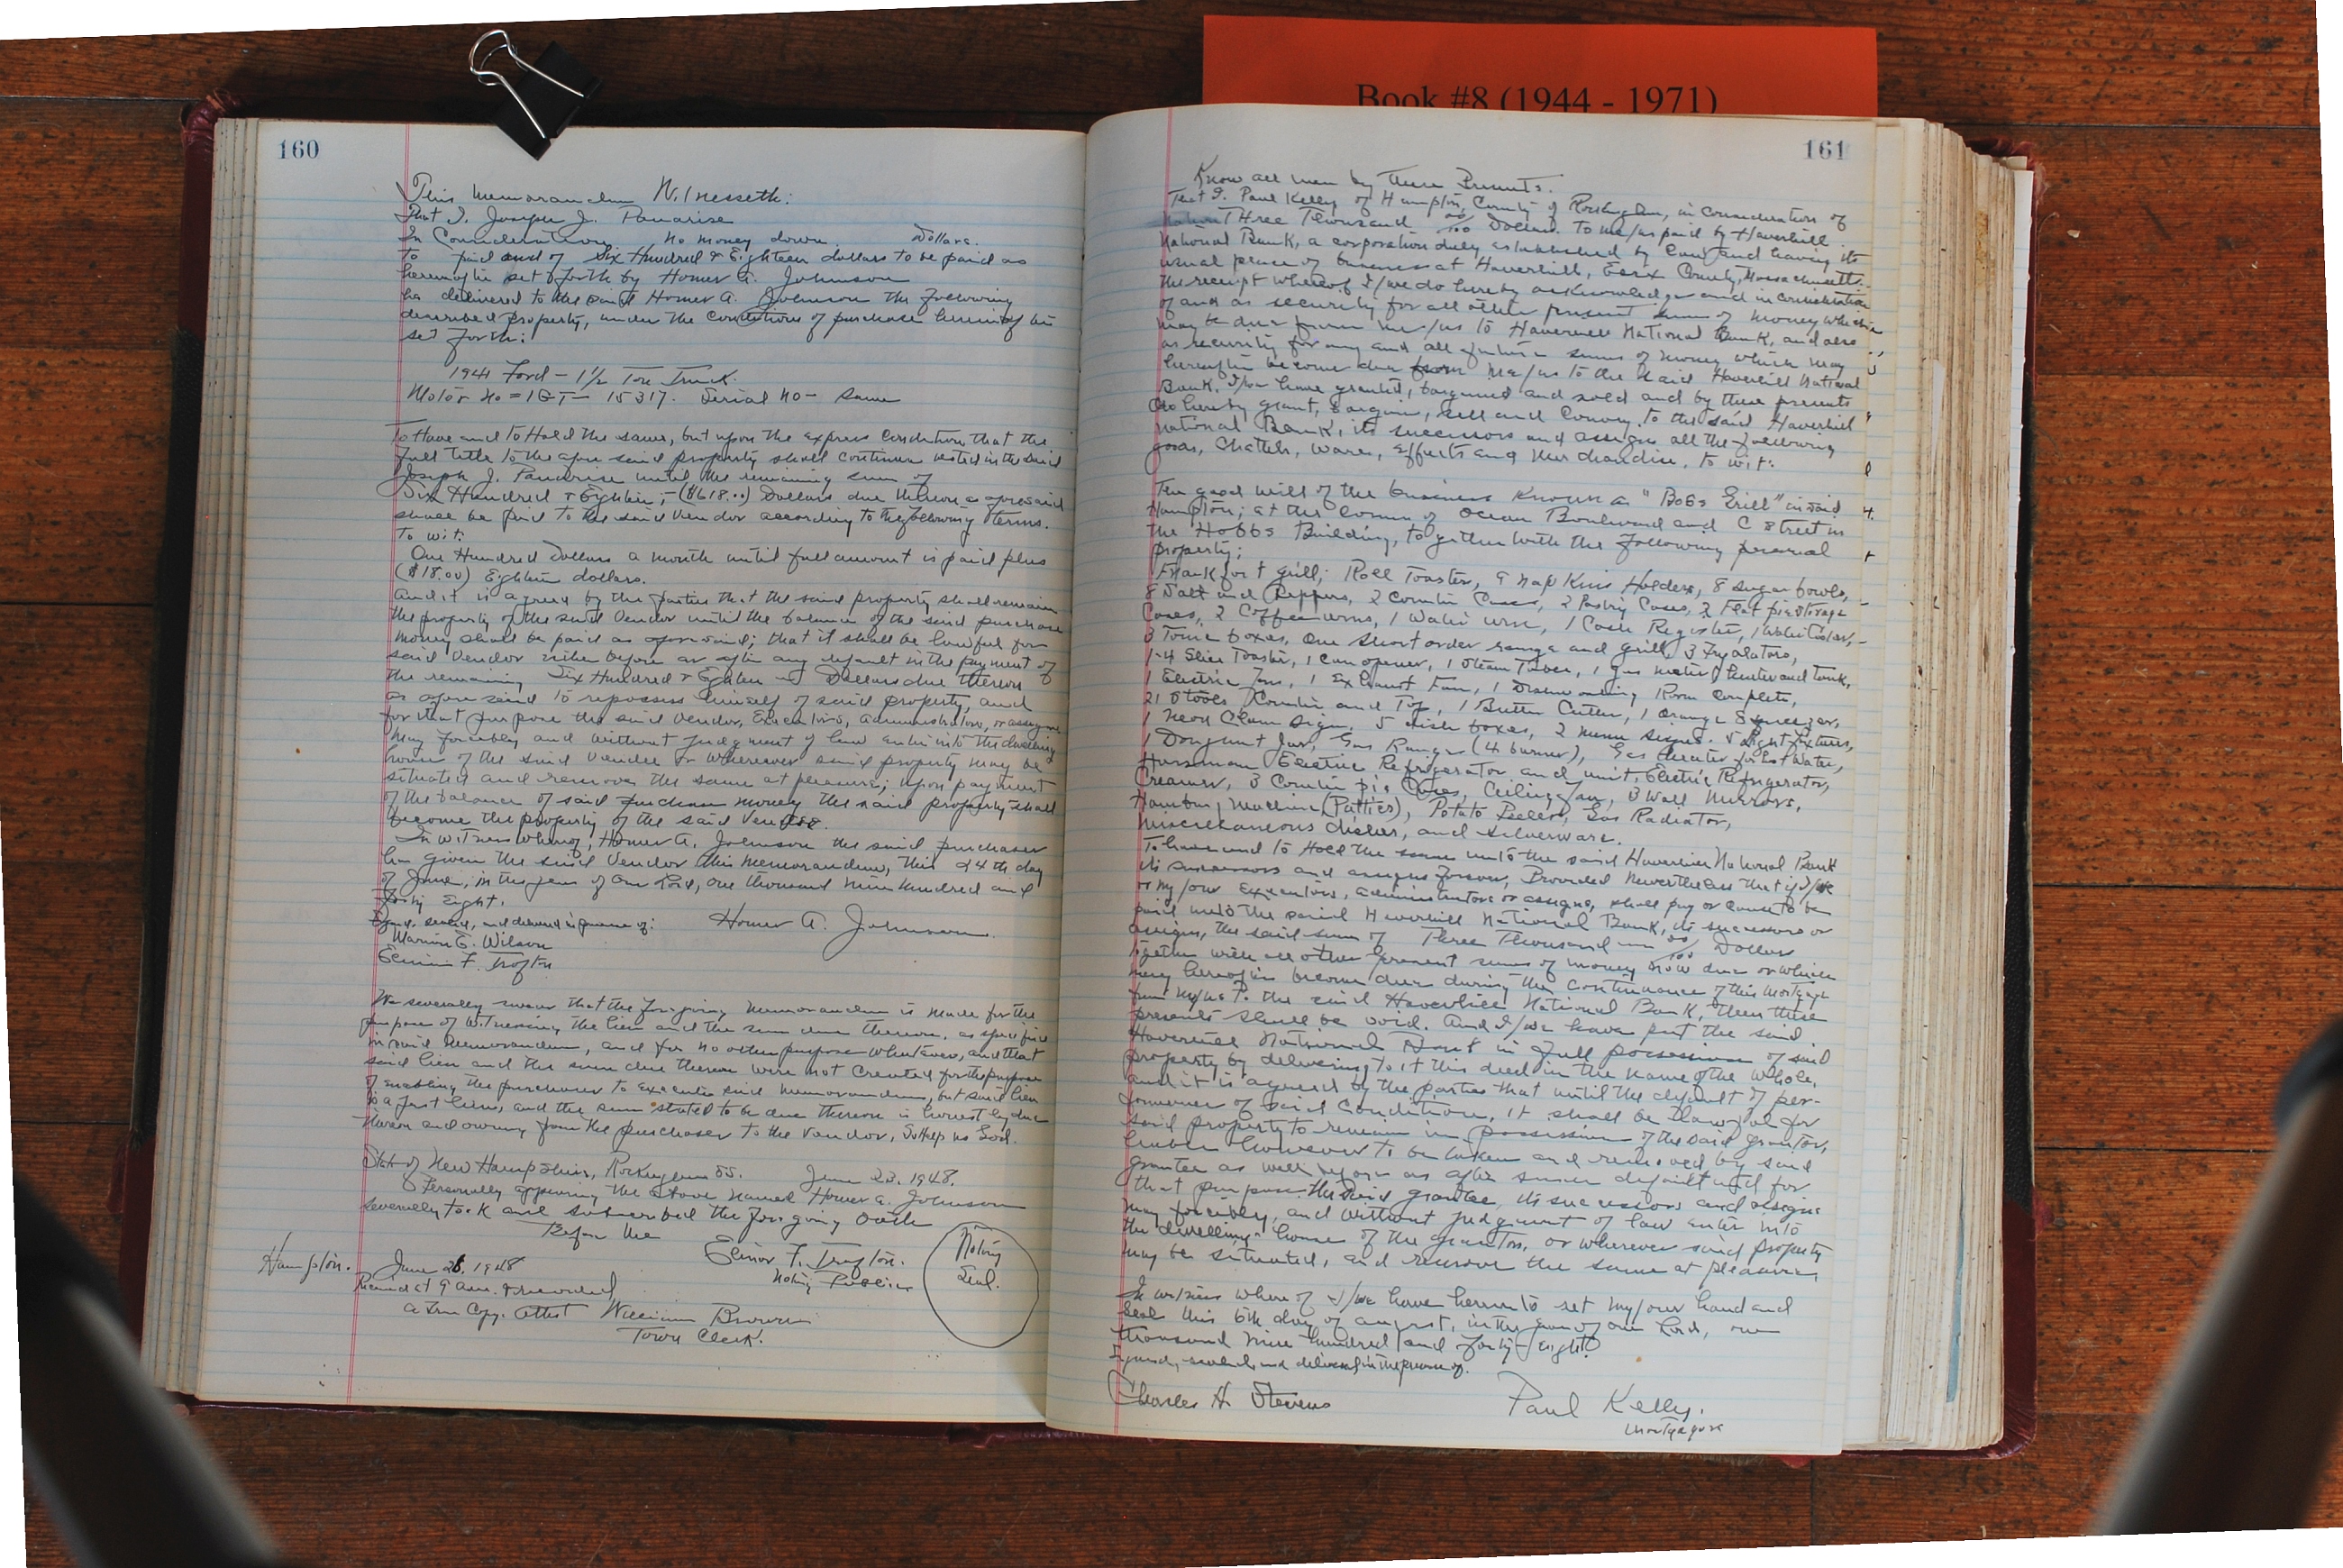 Book #8 (1944 - 1971)
160
This Memorandum Witnesseth:
That I, Joseph J. Panarise
In Consideration no money down Dollars.
to paid and of Six Hundred & Eighteen dollars to be paid as
hereinafter set forth by Homer A. Johnson
has delivered to the said Homer A. Johnson the following
described property, under the Conditions of purchase hereinafter
set forth:
1941 Ford - 1 1/2 Ton Truck.
Motor No = 1GT- 15317. Serial No - Same
To Have and to Hold the same, but upon the express Condition, that the
full title to the afore said property shall continue vested in the said
Joseph J. Panarise until the remaining sum of
Six Hundred & Eighteen - ($618.00) Dollars due thereon as aforesaid
shall be paid to the said Vendor according to the following terms.
To wit:
One Hundred Dollars a month until full amount is paid plus
($18.00) Eighteen dollars.
and it is agreed by the parties that the said property shall remain
the property of the said Vendor until the balance of the said purchase
money shall be paid as aforesaid; that it shall be lawful for
said Vendor either before or after any default in the payment of
the remaining Six Hundred & Eighteen Dollars due thereon
as afore said to repossess himself of said property, and
for that purpose the said Vendor, Executors, administrators, or assigns
may forcibly and without judgment of law enter into the dwelling
house of the said Vendee or wherever said property may be
situated and remove the same at pleasure; upon payment
of the balance of said purchase money the said property shall
become the property of the said Vendee.
In Witness Whereof, Homer A. Johnson the said purchaser
has given the said Vendor this memorandum, this 24th day
of June, in the year of Our Lord, one thousand nine hundred and
forty Eight.
Signed, sealed, and delivered in presence of: Homer A. Johnson.
Marion E. Wilson
Elinor F. Trofton
We severally swear that the forgoing memorandum is made for the
purpose of Witnessing the lien and the sum due thereon, as specified
in said Memorandum, and for no other purpose whatever, and that
said lien and the sum due thereon were not created for the purpose
of enabling the purchaser to execute said memorandum, but said lien
is a just lien, and the sum stated to be due thereon is honestly due
thereon and owing from the purchaser to the Vendor, So Help us God.
State of New Hampshire, Rockingham SS. June 23. 1948.
Personally appearing the above named Homer A. Johnson
severally took and subscribed the forgoing oath
Before Me
Elinor F. Trofton.
Notary Public
Notary
Seal.
Hampton. June 26, 1948
Received at 9 am. & recorded
a True Copy. Attest William Brown
Town Clerk.
161
Know all men by these Presents.
That I, Paul Kelly of Hampton, County of Rockingham, in consideration of
Three Thousand 00/100 Dollars to me/us paid by Haverhill
National Bank, a corporation duly established by law and having its
usual place of business at Haverhill, Essex County, Massachusetts.
the receipt whereof I/we do hereby acknowledge and in consideration
of and as security for all other present sums of money which
may be due from me/us to Haverhill National Bank, and also
as security for any and all future sums of money which may
hereafter become due from me/us to the said Haverhill National
Bank. I/we have granted, bargained and sold and by these presents
do hereby grant, bargain, sell and convey to the said Haverhill
National Bank, its successors and assigns all the following
goods, Chattels, Wares, Effects and Merchandise, to wit:
The good will of the business known as "Bobs Grill" in said
Hampton; at the Corner of Ocean Boulevard and C Street in
the Hobbs Building, together with the following personal
property:
Frankfort grill; Roll Toaster, 9 Napkins Holders, 8 Sugar bowls,
8 Salt and Peppers, 2 Counter Cases, 2 Pastry Cases, 2 Flat pie Storage
Cases, 2 Coffee urns, 1 Water urn, 1 Cash Register, 1 Water Cooler,
3 Tonic boxes, One short order range and grill, 3 Fryalators,
1-4 Slice Toaster, 1 Can opener, 1 Steam Table, 1 gas water heater and tank,
1 Electric Fans, 1 Exhaust Fan, 1 Dish washing Room Complete,
21 Stools Counter and Top, 1 Butter Cutter, 1 Orange Squeezer,
1 Neon Clam Sign, 5 dish boxes, 2 menu Signs. 5 Light Fixtures,
1 Doughnut Jar, Gas Range (4 burner), Gas Heater for Hot Water,
Hussman Electric Refrigerator and unit, Electric Refrigerator,
Creamer, 3 Counter pie Cases, Ceiling fan, 3 Wall Mirrors,
Hamburg Machine (Patties), Potato Peeler, Gas Radiator,
Miscellaneous dishes, and silverware.
To have and to Hold the same unto the said Haverhill National Bank
its successors and assigns forever, Provided Nevertheless that if I/we
or my/our Executors, administrators or assigns, shall pay or cause to be
paid unto the said Haverhill National Bank, its successors or
assigns, the said sum of Three Thousand 00/100 Dollars
together with all other present sums of money now due or which
may hereafter become due during the continuance of this mortgage
from my/us to the said Haverhill National Bank, then these
presents shall be void. And I/we have put the said
Haverhill National Bank in full possession of said
property by delivering to it this deed in the name of the whole,
and it is agreed by the parties that until the default of per-
formance of said condition, it shall be lawful for
said property to remain in possession of the said grantor,
liable however to be taken and removed by said
grantee as well before as after such default and for
that purpose the said grantee, its successors and assigns
may forcibly, and without judgment of law enter into
the dwelling house of the grantor, or wherever said property
may be situated, and remove the same at pleasure
In witness where of I/we have hereunto set my/our hand and
seal this 6th day of August, in the year of our Lord, one
thousand nine hundred and forty-eight
Signed, sealed and delivered in the presence of.
Charles H. Stevens Paul Kelly.
Mortgagor